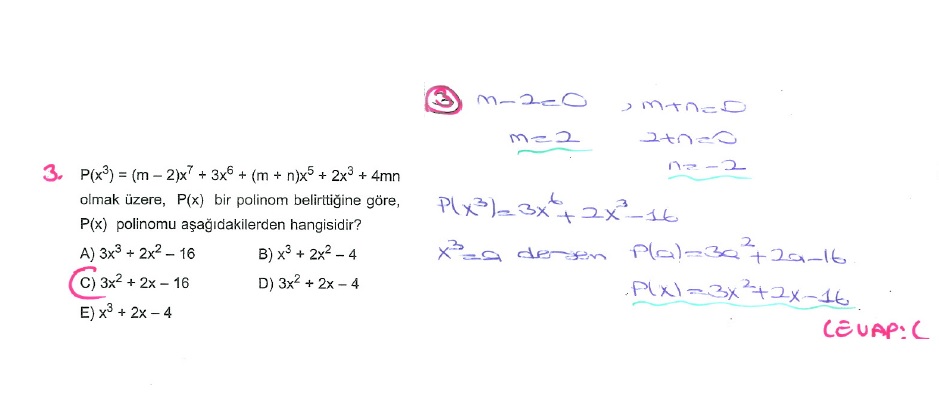 3. P(x³) = (m – 2)x⁷ + 3x⁶ + (m + n)x⁵ + 2x³ + 4mn
olmak üzere, P(x) bir polinom belirttiğine göre,
P(x) polinomu aşağıdakilerden hangisidir?
A) 3x³ + 2x² – 16 B) x³ + 2x² – 4
C) 3x² + 2x – 16 D) 3x² + 2x – 4
E) x³ + 2x – 4
3 m-2=0 , m+n=0
m=2 2+n=0
n=-2
P(x³)=3x⁶+2x³-16
x³=a dersen P(a)=3a²+2a-16
P(x)=3x²+2x-16
CEVAP:C